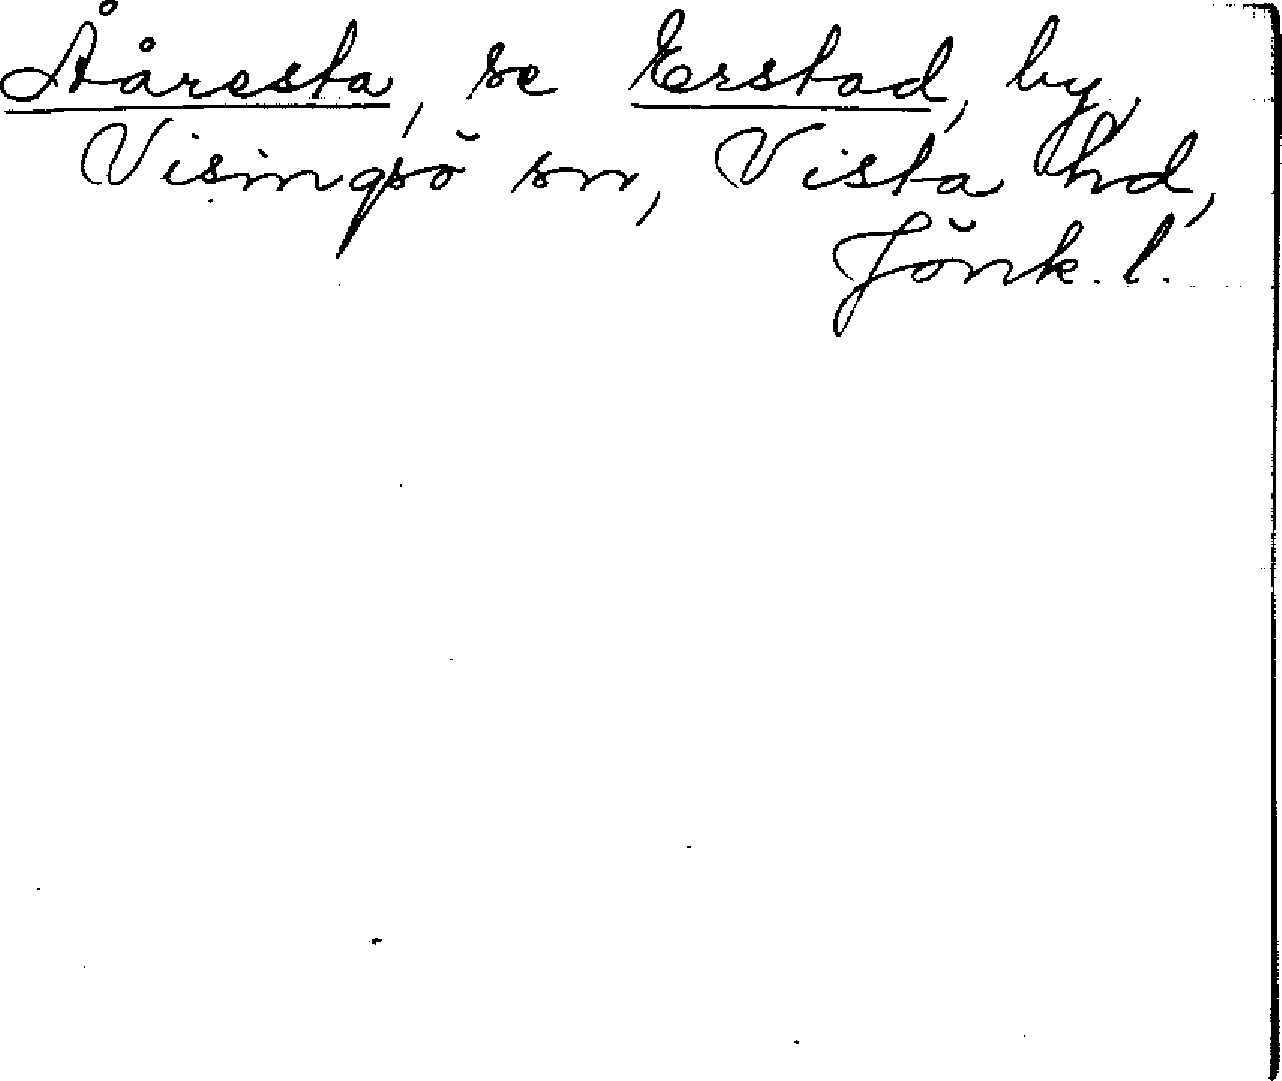 Ååresta, se Erstad, by,
Visingsö sn, Vista hd,
Jönk. l.